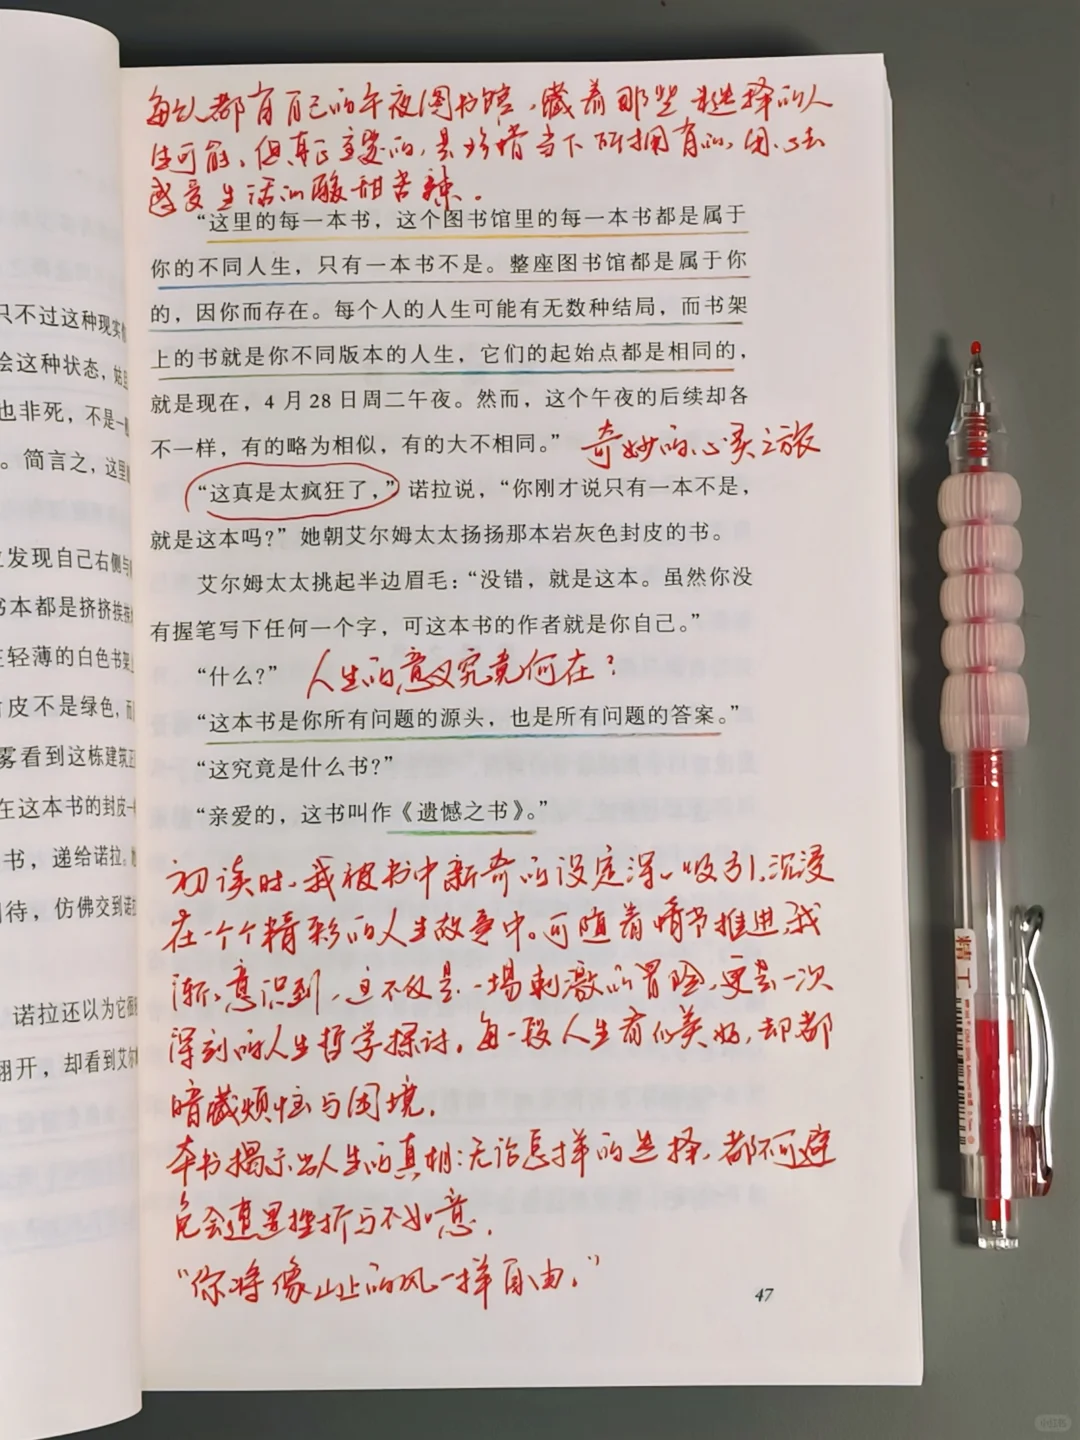 每个人都有自己的午夜图书馆，藏着那些未选择的人
生可能。但真正重要的，是珍惜当下所拥有的，用心去
感受生活的酸甜苦辣。
“这里的每一本书，这个图书馆里的每一本书都是属于
你的不同人生，只有一本书不是。整座图书馆都是属于你
的，因你而存在。每个人的人生可能有无数种结局，而书架
上的书就是你不同版本的人生，它们的起始点都是相同的，
就是现在，4 月 28 日周二午夜。然而，这个午夜的后续却各
不一样，有的略为相似，有的大不相同。” 奇妙的心灵之旅
“这真是太疯狂了，”诺拉说，“你刚才说只有一本不是，
就是这本吗？”她朝艾尔姆太太扬扬那本岩灰色封皮的书。
艾尔姆太太挑起半边眉毛：“没错，就是这本。虽然你没
有握笔写下任何一个字，可这本书的作者就是你自己。”
“什么？” 人生的意义究竟何在？
“这本书是你所有问题的源头，也是所有问题的答案。”
“这究竟是什么书？”
“亲爱的，这书叫作《遗憾之书》。”
初读时，我被书中新奇的设定深深吸引，沉浸
在一个个精彩的人生故事中。可随着情节推进，我
渐渐意识到，这不仅是一场刺激的冒险，更是一次
深刻的人生哲学探讨。每一段人生看似美好，却都
暗藏烦恼与困境。
本书揭示出人生的真相：无论怎样的选择，都不可避
免会遭遇挫折与不如意。
“你将像山上的风一样自由。”
47
只不过这种现实
会这种状态，姑且
也非死，不是一
。简言之，这里
发现自己右侧与
书本都是挤挤挨挨
轻薄的白色书架
皮不是绿色，而
雾看到这栋建筑正
在这本书的封皮
书，递给诺拉。
待，仿佛交到诺拉
诺拉还以为它很
翻开，却看到艾尔
精工